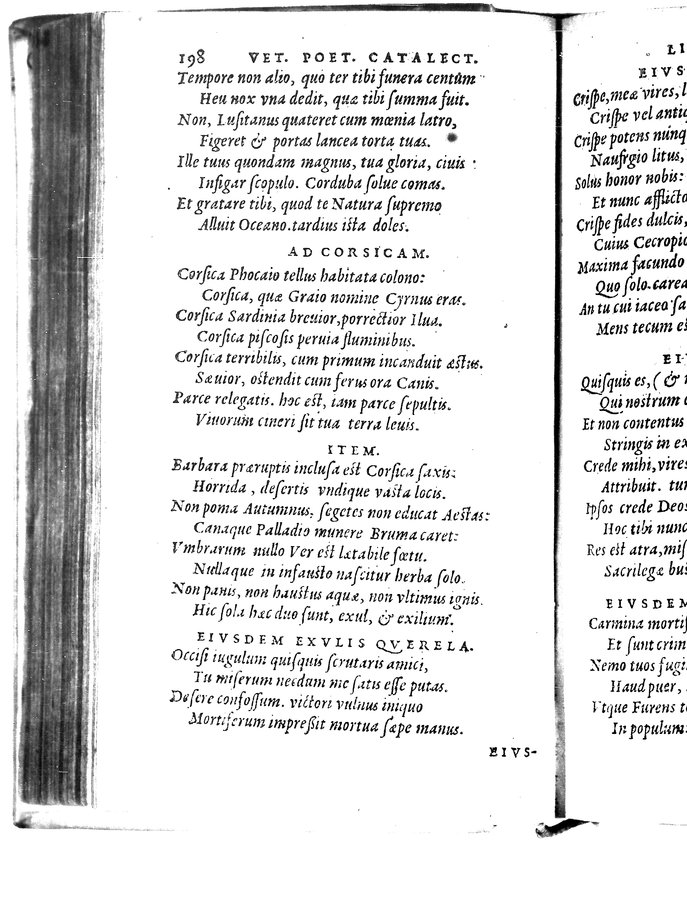 198 VET. POET. CATALECT.
Tempore non alio, quo ter tibi funera centũm
Heu nox vna dedit, quæ tibi summa fuit.
Non, Lusitanus quateret cum mœnia latro,
Figeret & portas lancea torta tuas.
Ille tuus quondam magnus, tua gloria, ciuis
Infigar scopulo. Corduba solue comas.
Et gratare tibi, quod te Natura supremo
Alluit Oceano. tardius ista doles.
AD CORSICAM.
Corsica Phocaio tellus habitata colono:
Corsica, quæ Graio nomine Cyrnus eras.
Corsica Sardinia breuior, porrectior Ilua.
Corsica piscosis peruia fluminibus.
Corsica terribilis, cum primum incanduit æstus.
Sæuior, ostendit cum ferus ora Canis.
Parce relegatis. hoc est, iam parce sepultis.
Viuorum cineri sit tua terra leuis.
ITEM.
Barbara præruptis inclusa est Corsica saxis:
Horrida, desertis vndique vasta locis.
Non poma Autumnus: segetes non educat Aestas:
Canaque Palladio munere Bruma caret:
Vmbrarum nullo Ver est lætabile fœtu.
Nullaque in infausto nascitur herba solo.
Non panis, non haustus aquæ, non vltimus ignis.
Hic sola hæc duo sunt, exul, & exilium.
EIVSDEM EXVLIS QVERELA.
Occisi iugulum quisquis scrutaris amici,
Tu miserum necdum me satis esse putas.
Desere confossum. victori vulnus iniquo
Mortiferum impreßit mortua sæpe manus.
EIVS-
LI
EIVS
Crispe, meæ vires, l
Crispe vel antiq
Crispe potens nunq
Naufrgio litus,
Solus honor nobis:
Et nunc afflicto
Crispe fides dulcis,
Cuius Cecropio
Maxima facundo
Quo solo carea
An tu cui iacea sa
Mens tecum es
EI
Quisquis es, (&
Qui nostrum
Et non contentus
Stringis in ex
Crede mihi, vires
Attribuit. tum
Ipsos crede Deos
Hoc tibi nunc
Res est atra, mis
Sacrilegæ bus
EIVSDEM
Carmina mortif
Et sunt crim
Nemo tuos fugi
Haud puer,
Vtque Furens t
In populum